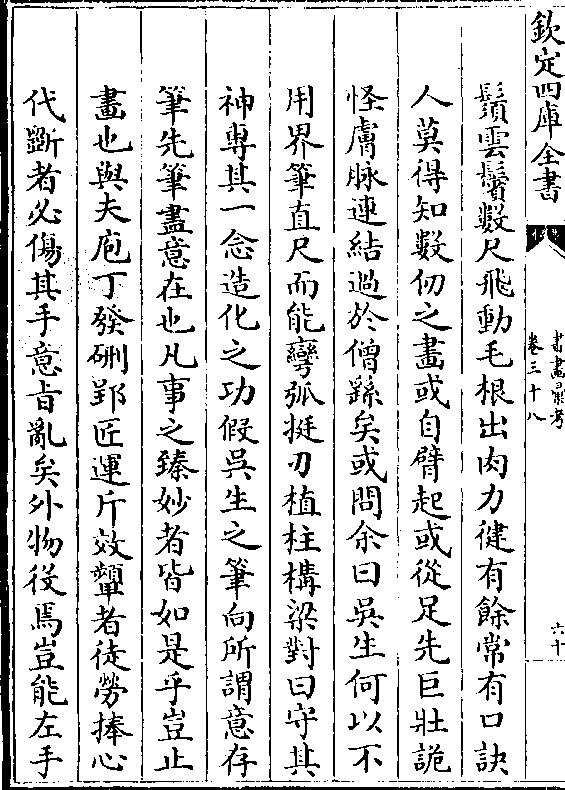 欽定四庫全書
書畫彙考
卷三十八
六十
鬚雲鬢數尺飛動毛根出肉力健有餘常有口訣
人莫得知數仞之畫或自臂起或從足先巨壯詭
怪膚脉連結過於僧繇矣或問余曰吳生何以不
用界筆直尺而能彎弧挺刃植柱構梁對曰守其
神專其一念造化之功假吳生之筆向所謂意存
筆先筆盡意在也凡事之臻妙者皆如是乎豈止
畫也與夫庖丁發硎郢匠運斤效顰者徒勞捧心
代斵者必傷其手意旨亂矣外物役焉豈能左手